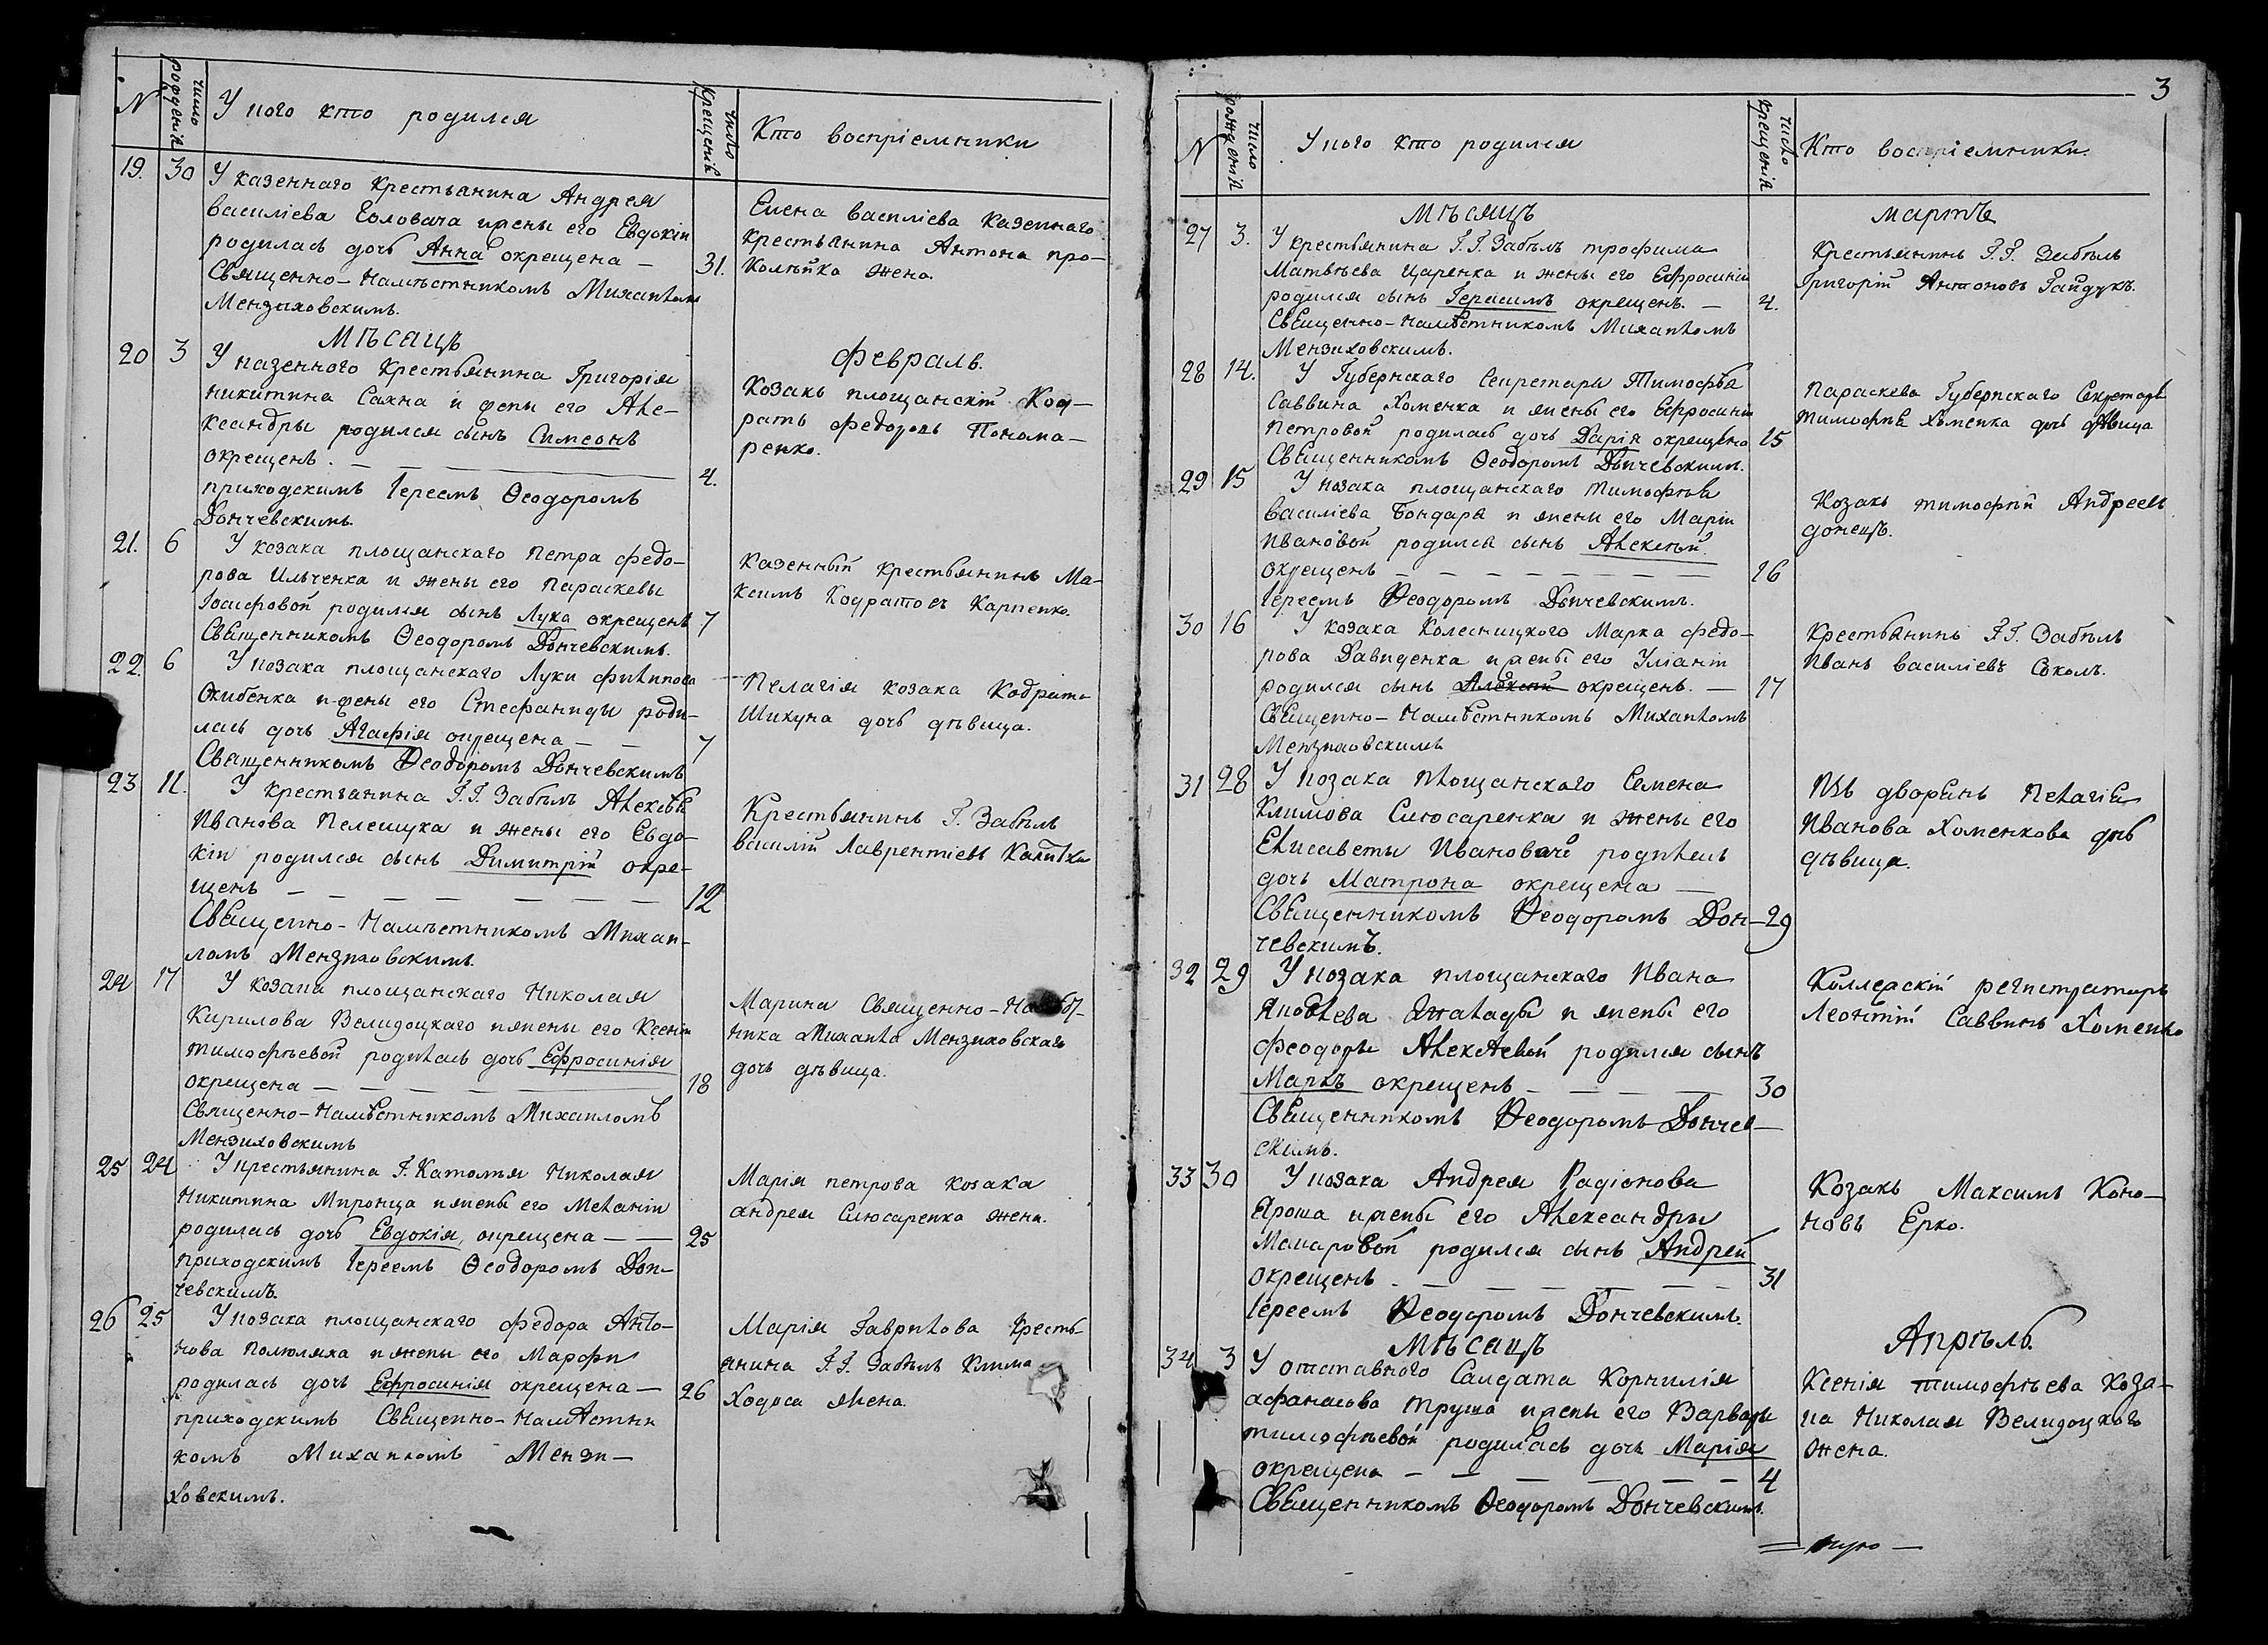 N
число рожденія
У кого кто родился
число крещенія
Кто воспріемники
19. 30 У казеннаго крестьянина Андрея
василіева Головача и жены его Евдокіи
родилась дочь Анна окрещена —
31.
Священно-Намѣстникомъ Михаиломъ
Мензиховскимъ.
Елена василіева казеннаго
крестьянина Антона про-
Колѣйка жена.
Мѣсяцъ
февраль.
20 3 У казенного крестьянина Григорія
никитина Сахна и жены его Але-
ксандры родился сынъ Симеонъ
окрещенъ. —
4.
приходскимъ Іереемъ Ѳеодоромъ
Дончевскимъ.
Козакъ площанскій Код-
ратъ Федоровъ Понома-
ренко.
21. 6 У козака площанскаго петра федо-
рова Ильченка и жены его параскевы
Іосифовой родился сынъ Лука окрещенъ 7
Священникомъ Ѳеодоромъ Дончевскимъ.
Казенный крестьянинъ Ма-
ксимъ Кодратовъ Карпенко.
22. 6 У козака площанскаго Луки филипова
и жены его Стефаниды роди-
лась дочь Агафія окрещена — —
7
Священникомъ Ѳеодоромъ Дончевскимъ
Пелагія козака Кодрата
Шикуна дочь дѣвица.
23 11. У крестьянина Г.Г. Забѣлъ Алексѣя
Иванова Пелешука и жены его Евдо-
кіи родился сынъ Димитрій окре-
щенъ — — — — — — —
12
Священно-Намѣстникомъ Михаи-
ломъ Мензиховскимъ.
Крестьянинъ Г. Забѣлъ
василій Лаврентіевъ
24 17 У козака площанскаго Николая
Кирилова Велидоцкаго и жены его Ксеніи
тимофѣевой родилась дочь Ефросинія
окрещена — — — —
18
Священно-Намѣстникомъ Михаиломъ
Мензиховскимъ
Марина Священно-Намѣст-
ника Михаила Мензиховскаго
дочь дѣвица.
25 24 У крестьянина Г. Католѣя Николая
Никитина Миронца и жены его Меланіи
родилась дочь Евдокія, окрещена — —
25
приходскимъ Іереемъ Ѳеодоромъ Дон-
чевскимъ.
Марія петрова козака
андрея Слюсаренка жена.
26 25 У козака площанскаго федора Анто-
нова Полюляха и жены его Марфы
родилась дочь Ефросинія окрещена —
26
приходскимъ Священно-Намѣстни
комъ Михаиломъ Мензи-
ховскимъ.
Марія Гаврилова кресть-
янина Г.Г. Забѣлъ Клима
Ходоса жена.
3
N
число рожденія
У кого кто родился
число крещенія
Кто воспріемники.
Мѣсяцъ
мартъ
27 3. У крестьянина Г.Г. Забѣлъ трофима
Матвѣева Царенка и жены его Ефросиніи
родился сынъ Герасимъ окрещенъ. —
4.
Священно-Намѣстникомъ Михаиломъ
Мензиховскимъ.
Крестьянинъ Г.Г. Забѣлъ
Григорій Антоновъ Гайдукъ.
28 14. У Губернскаго Секретаря Тимофѣя
Саввина Хоменка и жены его Ефросиніи
Петровой родилась дочь Дарія окрещена
15
Священникомъ Ѳеодоромъ Дончевскимъ.
Параскева Губернскаго Секретаря
тимофѣя Хоменка дочь дѣвица
29 15 У козака площанскаго тимофѣя
Василіева Бондаря и жены его Маріи
Ивановой родился сынъ Алексѣй
окрещенъ — — — — — — —
16
Іереемъ Ѳеодоромъ Дончевскимъ.
Козакъ тимофѣй Андреевъ
донецъ.
30 16 У козака Колесницкого Марка федо-
рова Давиденка и жены его Уліаніи
родился сынъ Алексѣй окрещенъ. —
17
Священно-Намѣстникомъ Михаиломъ
Мензиховскимъ
Крестьянинъ Г.Г. Забѣлъ
Иванъ василіевъ Соколъ.
31 28 У козака площанскаго Семена
Климова Слюсаренка и жены его
Елисаветы Ивановой родилась
дочь Матрона окрещена —
Священникомъ Ѳеодоромъ Дон-
29
чевскимъ.
Изъ дворянъ Пелагія
Иванова Хоменкова дочь
дѣвица.
32 29 У козака площанскаго Ивана
Яковлева и жены его
Феодоры Алексѣевой родился сынъ
Маркъ окрещенъ — — — —
30
Священникомъ Ѳеодоромъ Дончев-
скимъ.
Коллежскій регистраторъ
Леонтій Саввинъ Хоменко
33 30 У козака Андрея Радіонова
Яроша и жены его Александры
Макаровой родился сынъ Андрей
окрещенъ. — — — — — —
31
Іереемъ Ѳеодоромъ Дончевскимъ.
Козакъ Максимъ Коно-
новъ Ерко.
Мѣсяцъ
Апрѣль.
34 3 У отставного Салдата Корнилія
афанасова труша и жены его Варвары
тимофѣевой родилась дочь Марія
окрещена — — — — — —
4
Священникомъ Ѳеодоромъ Дончевскимъ.
Ксенія тимофѣева коза-
ка Николая Велидоцкаго
жена.